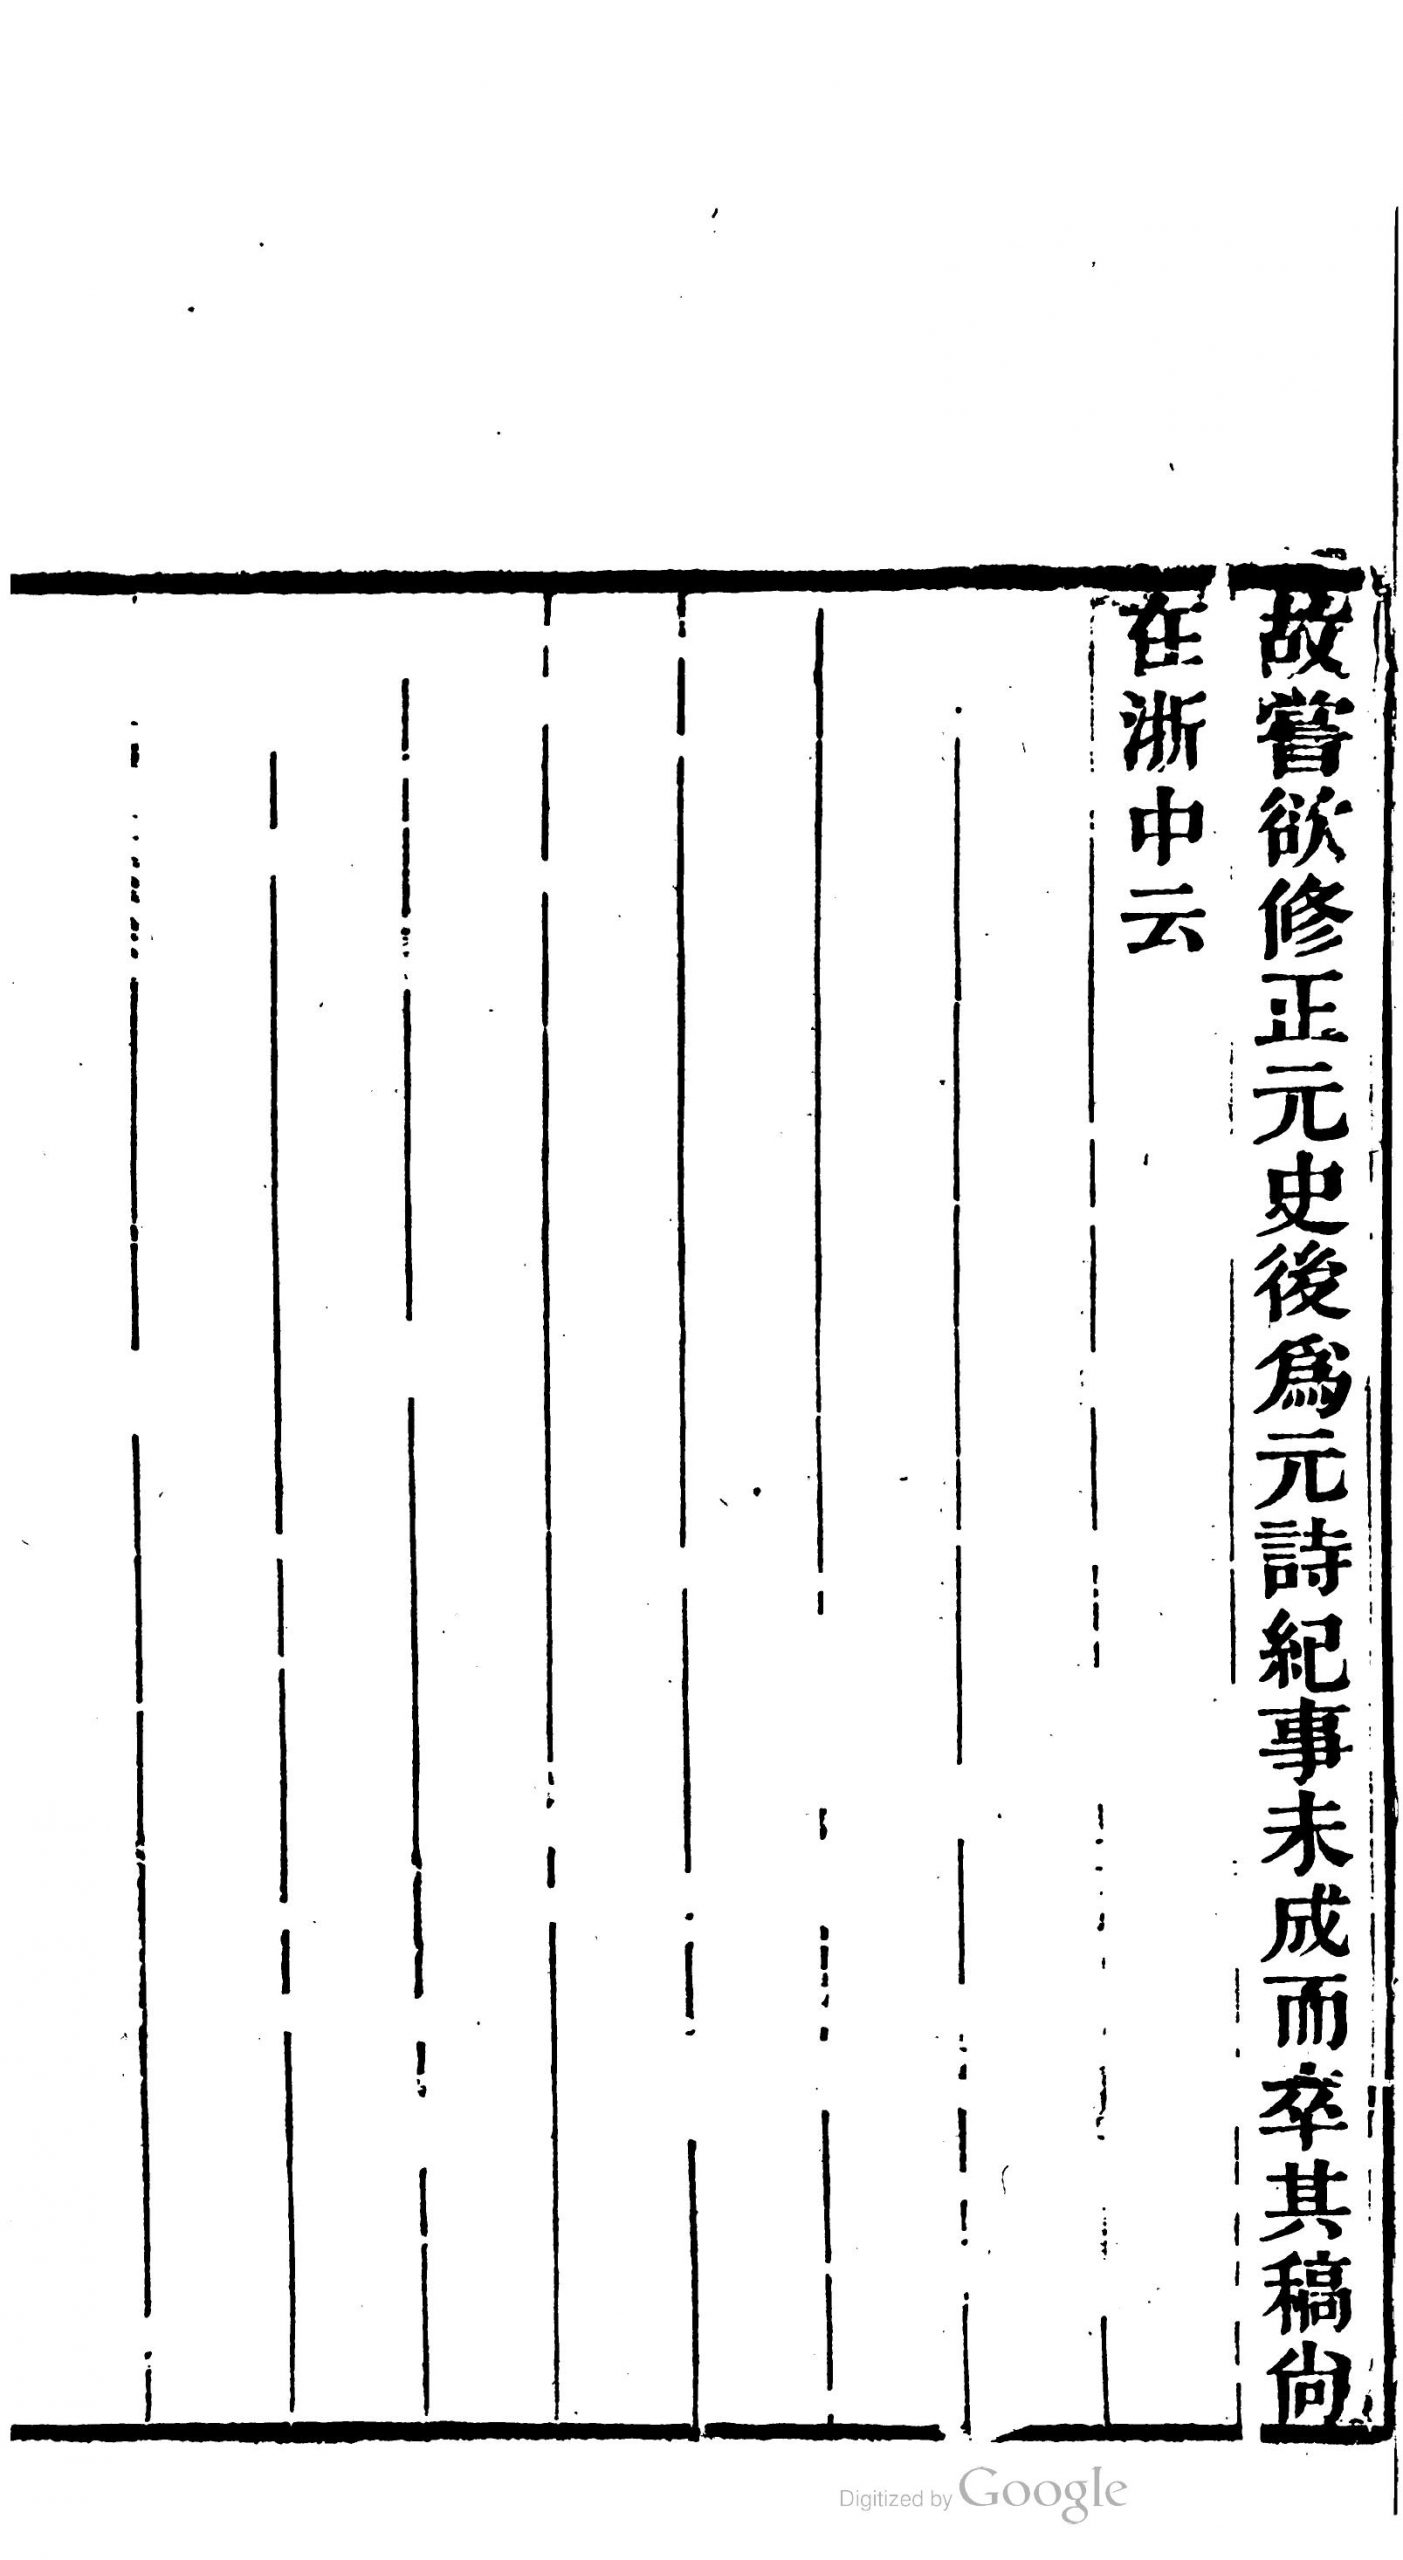 故嘗欲修正元史後爲元詩紀事未成而卒其稿尙
在浙中云
Digitized by Google